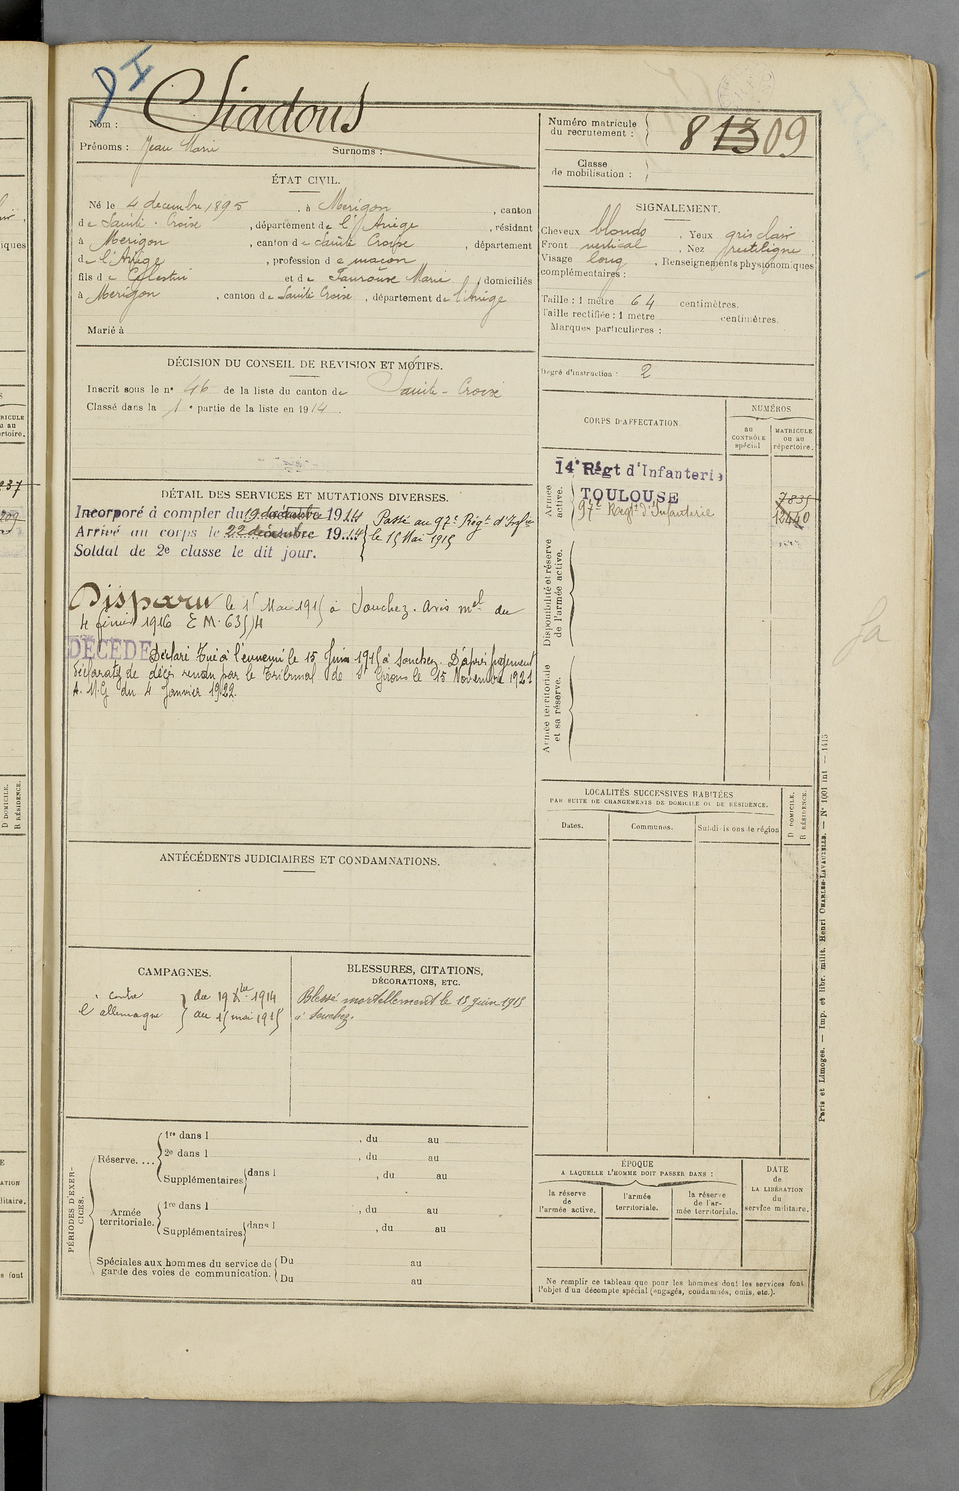 DI
Siadous
Nom :
Prénoms : Jean Marie Surnoms :
ÉTAT CIVIL.
Né le 4 decembre 1895, à Merigon, canton
de Sainte-Croix, département de l'Ariège, résidant
à Merigon, canton de Sainte Croix, département
de l'Ariège, profession de maçon
fils de Célestin et de Marie domiciliés
à Merigon, canton de Sainte Croix, département de l'Ariège
Marié à
DÉCISION DU CONSEIL DE RÉVISION ET MOTIFS.
Inscrit sous le n° 46 de la liste du canton de Sainte-Croix
Classé dans la 1e partie de la liste en 1914.
DÉTAIL DES SERVICES ET MUTATIONS DIVERSES.
Incorporé à compter du 19 décembre 1914
Arrivé au corps le 22 décembre 1914
Soldat de 2e classe le dit jour.
Passé au 97e Régt d'Infrie
le 15 Mai 1915
Disparu le 15 Mai 1915 à Souchez. Avis mel du
4 février 1916 E M. 635/4
DÉCÉDÉ Déclaré Tué à l'ennemi le 15 Juin 1915 à Souchez. D'après jugement
déclaratif de décès rendu par le Tribunal de St Girons le 15 Novembre 1921
A. M. G du 4 Janvier 1922.
ANTÉCÉDENTS JUDICIAIRES ET CONDAMNATIONS.
CAMPAGNES.
contre
l'allemagne
du 19 Xbre 1914
au 15 mai 1915
BLESSURES, CITATIONS,
DÉCORATIONS, ETC.
Blessé mortellement le 15 juin 1915
à Souchez.
PÉRIODES D'EXERCICES.
Réserve....
1re dans l , du au
2e dans l , du au
Supplémentaires dans l , du au
Armée
territoriale.
1re dans l , du au
Supplémentaires dans l , du au
Spéciales aux hommes du service de
garde des voies de communication.
Du au
Du au
Numéro matricule
du recrutement :
8 13 09
Classe
de mobilisation :
SIGNALEMENT.
Cheveux blonds. Yeux gris clair
Front vertical, Nez rectiligne
Visage long, Renseignements physionomiques
complémentaires :
Taille : 1 mètre 64 centimètres.
Taille rectifiée : 1 mètre centimètres.
Marques particulières :
Degré d'instruction : 2
CORPS D'AFFECTATION.
NUMÉROS
au
CONTRÔLE
spécial
MATRICULE
ou au
répertoire.
Armée
active.
14e Régt d'Infanterie
TOULOUSE
7835
97e Régt d'Infanterie
12440
Disponibilité et réserve
de l'armée active.
Armée territoriale
et sa réserve.
LOCALITÉS SUCCESSIVES HABITÉES
PAR SUITE DE CHANGEMENTS DE DOMICILE OU DE RÉSIDENCE.
Dates.
Communes.
Subdivisions de région
D DOMICILE.
R RÉSIDENCE.
ÉPOQUE
A LAQUELLE L'HOMME DOIT PASSER DANS :
la réserve
de
l'armée active.
l'armée
territoriale.
la réserve
de l'ar-
mée territoriale.
DATE
de
LA LIBÉRATION
du
service militaire.
Ne remplir ce tableau que pour les hommes dont les services font
l'objet d'un décompte spécial (engagés, condamnés, omis, etc.).
Paris et Limoges. — Imp. et libr. milit. Henri CHARLES-LAVAUZELLE. — N° 1601 int — 1415